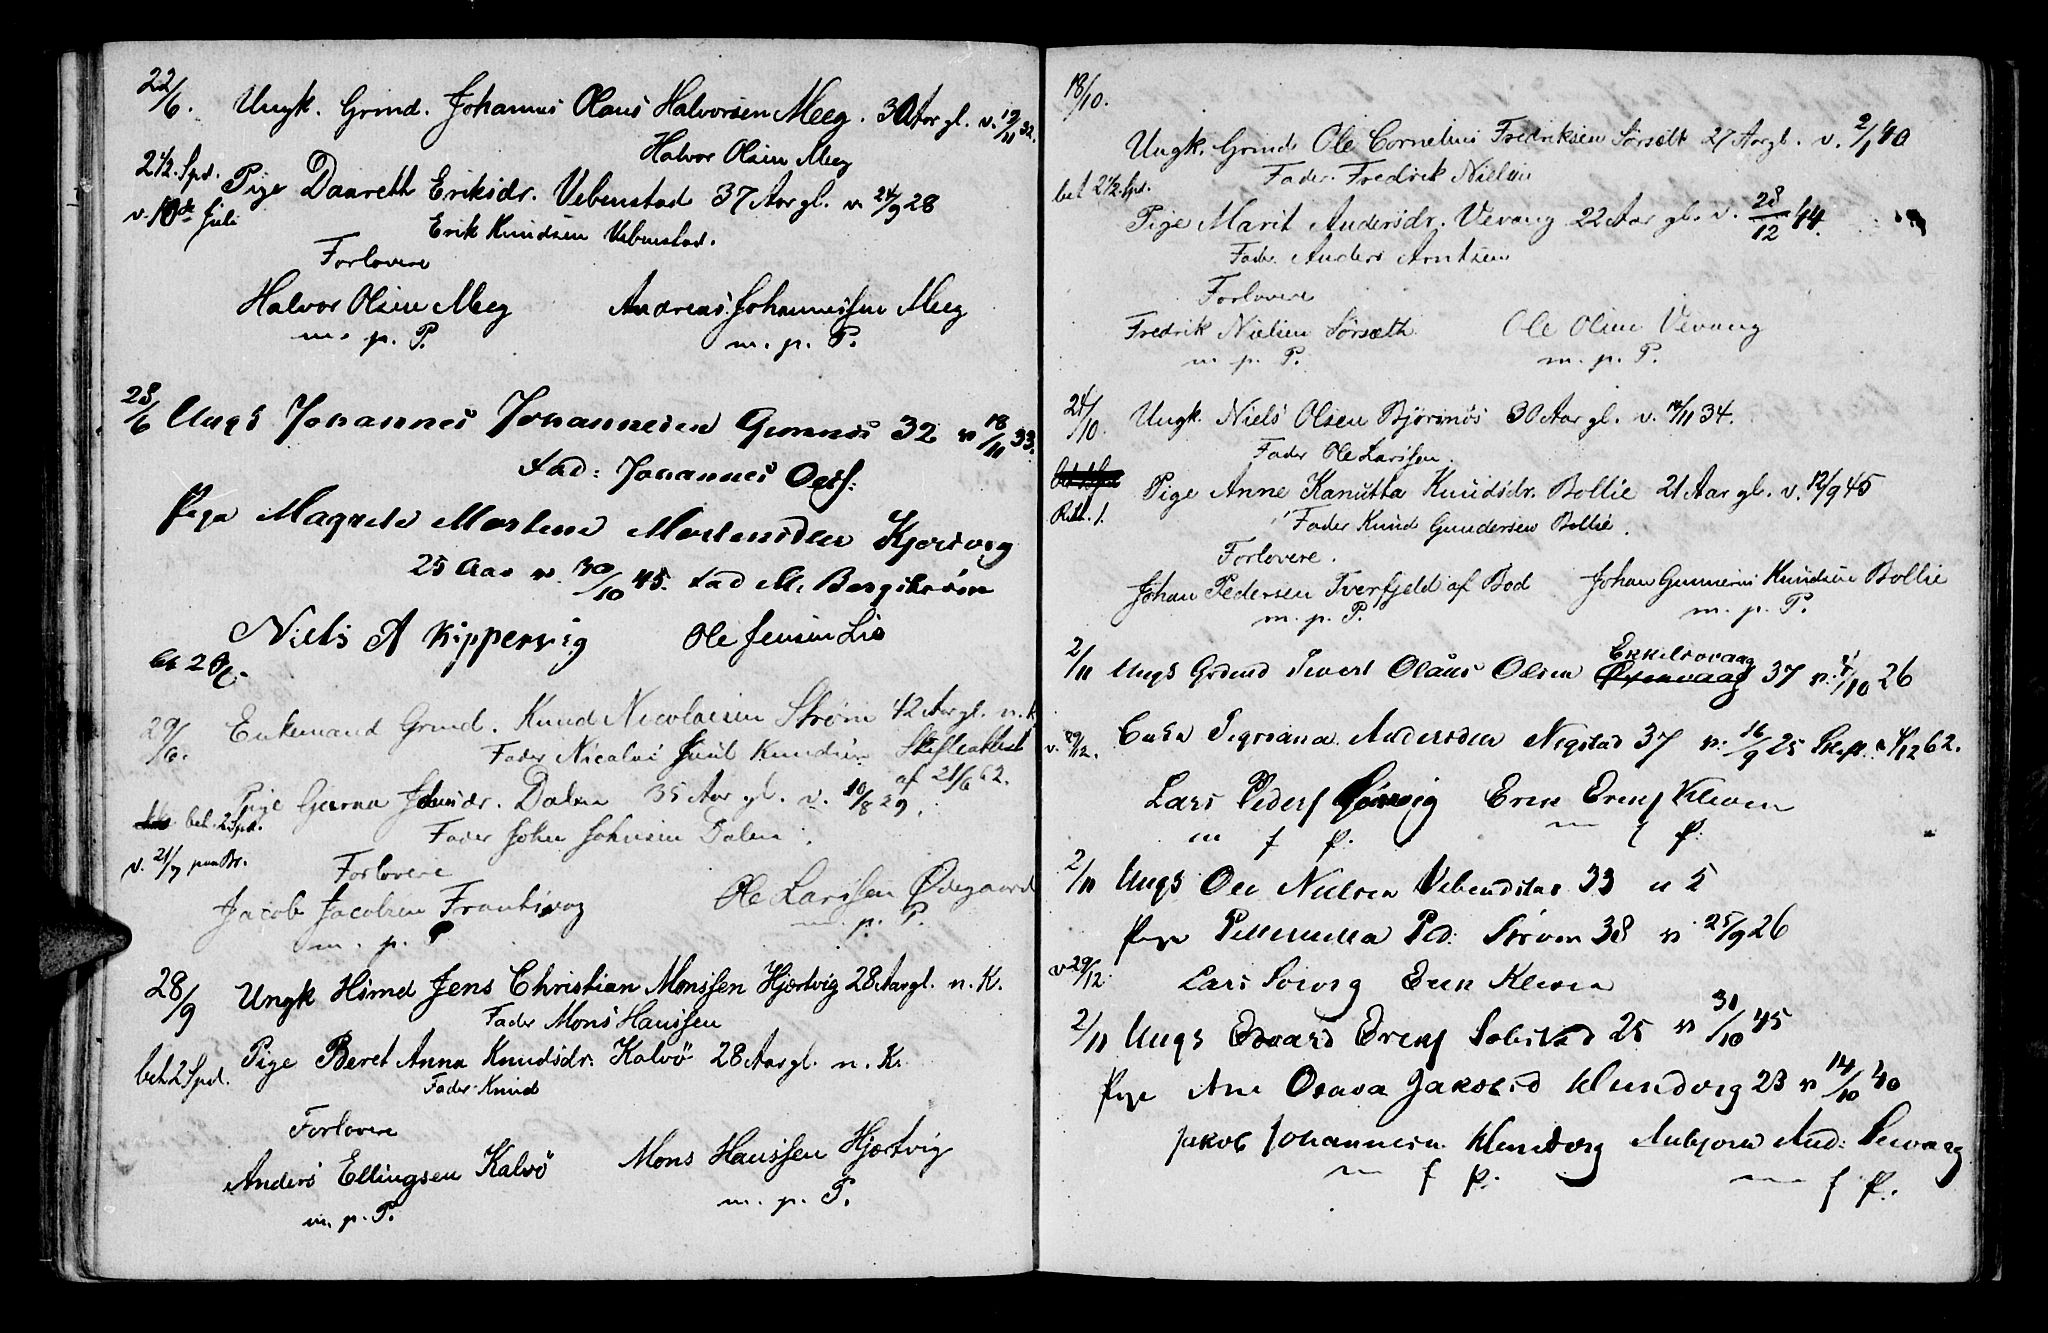 22/6. Ungk. Grmd. Johannes Olaus Halvorsen Meeg. 30 Aar gl. v. 19/11 32.
Halvor Olsen Meeg
2 1/2 Spd. Pige Daareth Eriksdr. Vebenstad 37 Aar gl. v. 24/9 28
v. 10de Juli Erik Knudsen Vebenstad.
Forlovere
Halvor Olsen Meeg Andreas Johannessen Meeg
m. p. P. m. p. P.
28/6 Ungk Johannes Johannesen Gimnes 32 v 18/11 33.
Fad: Johannes Ols:
Pige Magrete Mortine Mortensdtr Kjorsvig
25 Aar v. 30/10 45. Fad M. Bergstrøm
Niels A Kippervig Ole Jensen Lie
bet 2
29/6. Enkemand Grmd. Knud Nicolaisen Strøm 42 Aar gl. n. K
Fader Nicolai Juul Knudsen Skifteattest
af 21/6 62.
Pige Gurina Johnsdr. Dalen 35 Aar gl. v. 10/8 29.
bet. 2 Spd. Fader John Johnsen Dalen.
v. 21/7 paa Br. Forlovere
Jacob Jacobsen Frantsvog Ole Larssen Ødegaard
m. p. P m. p. P.
28/9 Ungk Hsmd Jens Christian Monssen Hjertvig 28 Aar gl. n. K.
Fader Mons Hanssen
bet. 2 Spd. Pige Beret Anna Knudsdr. Kalvö 28 Aar gl. n. K.
Fader Knud
Forlovere
Anders Ellingsen Kalvö Mons Hanssen Hjertvig
m. p. P. m. p. P.
18/10.
Ungk. Grmd Ole Cornelius Fredriksen Sörsæth 27 Aar gl. v. 2/1 40
Fader Fredrik Nielsen
bet 2 1/2 Spd.
Pige Marit Andersdr. Vevang 22 Aar gl. v. 28/12 44.
Fader Anders Arntsen
Forlovere
Fredrik Nielsen Sörsæth Ole Olsen Vevang
m. p. P. m. p. P.
24/10. Ungk. Niels Olsen Björsnös 30 Aar gl. v. 14/11 34.
Fader Ole Larssen.
Pige Anne Kanutta Knudsdr. Bollie 21 Aar gl. v. 12/9 45
Fader Knud Gundersen Bollie.
Forlovere.
Johan Pedersen Tverfjeld af Bod Johan Gunnerus Knudsen Bollie
m. p. P. m. p. P.
2/11 Ungk Grdmd Sivert Olaus Olsen Enkelsvaag 37 v. 4/10 26
v. 29/12. Enke Sigriana Andersdtr Negstad 37 v. 16/9 25 Ske.. 4/12 62.
Lars Peders Sörvig Erik Eriks Kleven
m p P. m p P.
2/11 Ungk Ole Nielsen Vebendstad 33 v 5
Pige Petternella Ped: Strøm 38 v 25/9 26
v 29/12. Lars Sorvig Erik Kleven
2/11 Ungk Edvard Eriks Solstad 25 v 31/10 45
Pige Ane Olava Jakobsd Klundvig 23 v 14/10 40
Jakob Johannesen Klundvig Anbjorn And: Vevang
m p P. m p P.